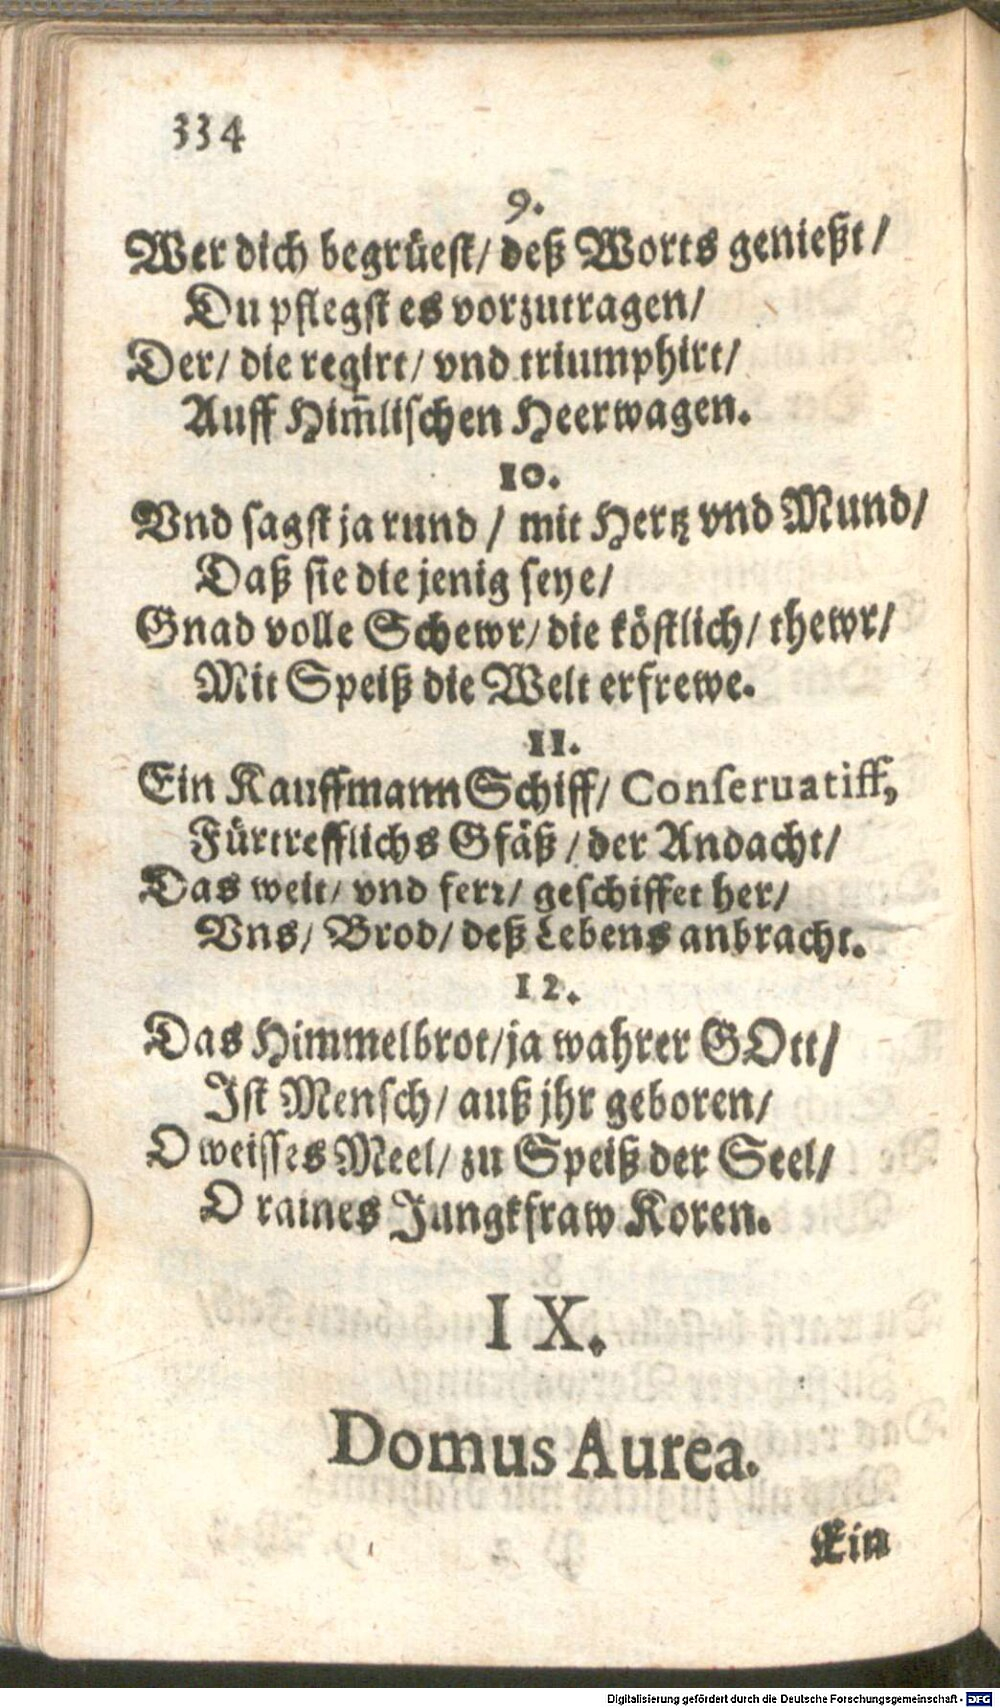 334
9.
Wer dich begrüest/ deß Worts genießt/
Du pflegst es vorzutragen/
Der/ die regirt/ vnd triumphirt/
Auff Him̃lischen Heerwagen.
10.
Vnd sagst ja rund / mit Hertz vnd Mund/
Daß sie die jenig seye/
Gnad volle Schewr/ die köstlich/ thewr/
Mit Speiß die Welt erfrewe.
11.
Ein Kauffmann Schiff/ Conseruatiff,
Fürtrefflichs Gfäß / der Andacht/
Das weit/ vnd ferr/ geschiffet her/
Vns/ Brod/ deß Lebens anbracht.
12.
Das Himmelbrot/ ja wahrer GOtt/
Ist Mensch/ auß jhr geboren/
O weisses Meel/ zu Speiß der Seel/
O raines Jungkfraw Koren.
IX.
Domus Aurea.
Ein
Digitalisierung gefördert durch die Deutsche Forschungsgemeinschaft - DFG